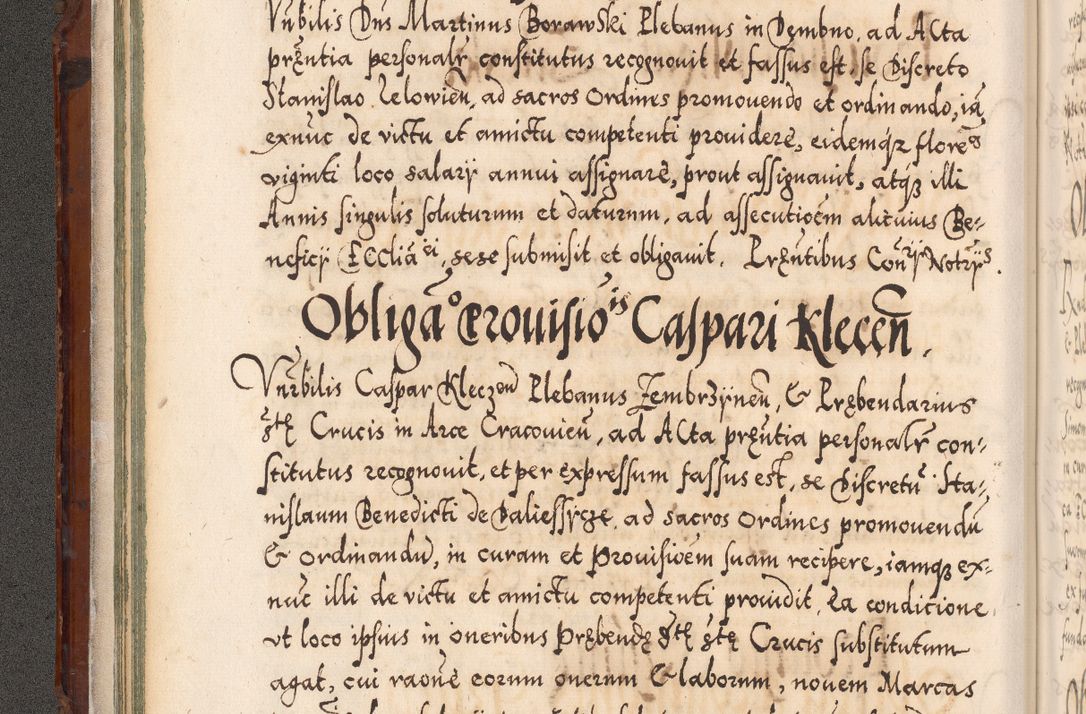 Vnrbilis Dns Martinus Borawski Plebanus in Dembno, ad Acta
prentia personalr constitutus recognouit et fassus est, se Discreto
Stanislao Lelowien, ad sacros Ordines promouendo et ordinando, ia
exnuc de victu et amictu competenti prouidere, eidemqz flores
viginti loco salarij annui assignare, prout assignauit, atqz illi
Annis singulis soluturum et daturum, ad assecutioem alicuius Be=
neficij Ecclia ei, sese submisit et obligauit. Prentibus Conrijs Notrijs.
Obliga o Prouisiois Caspari Klecen.
Vnrbilis Caspar Kleczen Plebanus Zembrzynen, & Prebendarius
Ste Crucis in Arce Cracouien, ad Acta prentia personalr con=
stitutus recognouit, et per expressum fassus est, se Discretu Sta=
nislaum Benedicti de Paliessycze, ad sacros Ordines promouendu
& Ordinandu, in curam et Prouisioem suam recipere, iamqz ex=
nuc illi de victu et amictu competenti prouidit, ea condicione
vt loco ipsius in oneribus Prebende Ste Ste Crucis substitutum
agat, cui raone eorum onerum & laborum, nouem Marcas